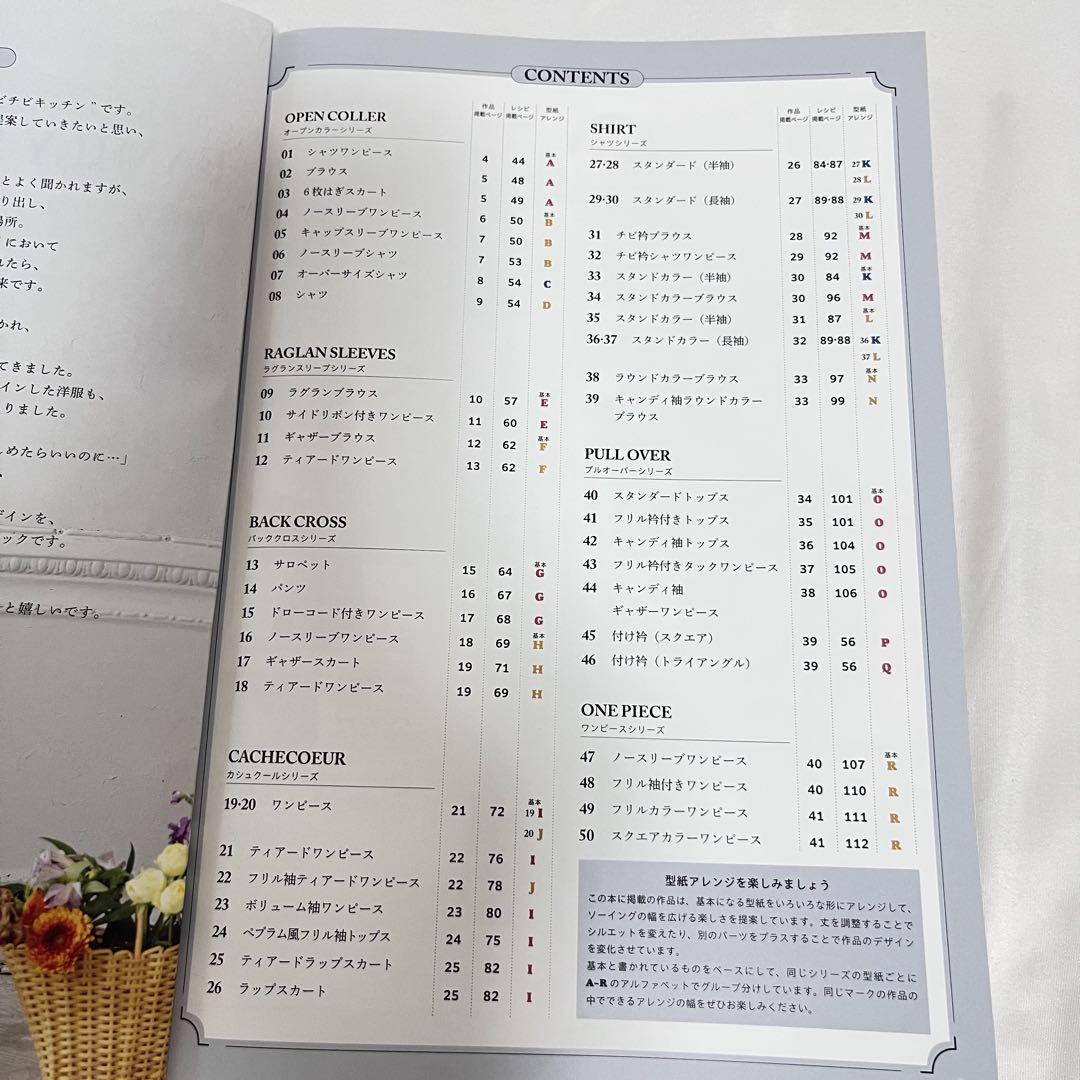 ビチビキッチン”です。
提案していきたいと思い、
とよく聞かれますが、
り出し、
場所。
において
れたら、
来です。
かれ、
てきました。
インした洋服も、
りました。
しめたらいいのに…」
ザインを、
ックです。
と嬉しいです。
CONTENTS
作品 レシピ 型紙
掲載ページ 掲載ページ アレンジ
OPEN COLLER
オープンカラーシリーズ
01 シャツワンピース 4 44 基本 A
02 ブラウス 5 48 A
03 6枚はぎスカート 5 49 A
04 ノースリーブワンピース 6 50 基本 B
05 キャップスリーブワンピース 7 50 B
06 ノースリーブシャツ 7 53 B
07 オーバーサイズシャツ 8 54 C
08 シャツ 9 54 D
RAGLAN SLEEVES
ラグランスリーブシリーズ
09 ラグランブラウス 10 57 基本 E
10 サイドリボン付きワンピース 11 60 E
11 ギャザーブラウス 12 62 基本 F
12 ティアードワンピース 13 62 F
BACK CROSS
バッククロスシリーズ
13 サロペット 15 64 基本 G
14 パンツ 16 67 G
15 ドローコード付きワンピース 17 68 G
16 ノースリーブワンピース 18 69 基本 H
17 ギャザースカート 19 71 H
18 ティアードワンピース 19 69 H
CACHECOEUR
カシュクールシリーズ
19・20 ワンピース 21 72 基本 19 I
20 J
21 ティアードワンピース 22 76 I
22 フリル袖ティアードワンピース 22 78 J
23 ボリューム袖ワンピース 23 80 I
24 ペプラム風フリル袖トップス 24 75 I
25 ティアードラップスカート 25 82 I
26 ラップスカート 25 82 I
作品 レシピ 型紙
掲載ページ 掲載ページ アレンジ
SHIRT
シャツシリーズ
27・28 スタンダード（半袖） 26 84・87 27 K
28 L
29・30 スタンダード（長袖） 27 89・88 29 K
30 L
31 チビ衿ブラウス 28 92 基本 M
32 チビ衿シャツワンピース 29 92 M
33 スタンドカラー（半袖） 30 84 基本 K
34 スタンドカラーブラウス 30 96 M
35 スタンドカラー（半袖） 31 87 基本 L
36・37 スタンドカラー（長袖） 32 89・88 36 K
37 L
38 ラウンドカラーブラウス 33 97 基本 N
39 キャンディ袖ラウンドカラー 33 99 N
ブラウス
PULL OVER
プルオーバーシリーズ
40 スタンダードトップス 34 101 基本 O
41 フリル衿付きトップス 35 101 O
42 キャンディ袖トップス 36 104 O
43 フリル衿付きタックワンピース 37 105 O
44 キャンディ袖 38 106 O
ギャザーワンピース
45 付け衿（スクエア） 39 56 P
46 付け衿（トライアングル） 39 56 Q
ONE PIECE
ワンピースシリーズ
47 ノースリーブワンピース 40 107 基本 R
48 フリル袖付きワンピース 40 110 R
49 フリルカラーワンピース 41 111 R
50 スクエアカラーワンピース 41 112 R
型紙アレンジを楽しみましょう
この本に掲載の作品は、基本になる型紙をいろいろな形にアレンジして、
ソーイングの幅を広げる楽しさを提案しています。丈を調整することで
シルエットを変えたり、別のパーツをプラスすることで作品のデザイン
を変化させています。
基本と書かれているものをベースにして、同じシリーズの型紙ごとに
A~Rのアルファベットでグループ分けしています。同じマークの作品の
中でできるアレンジの幅をぜひお楽しみください。